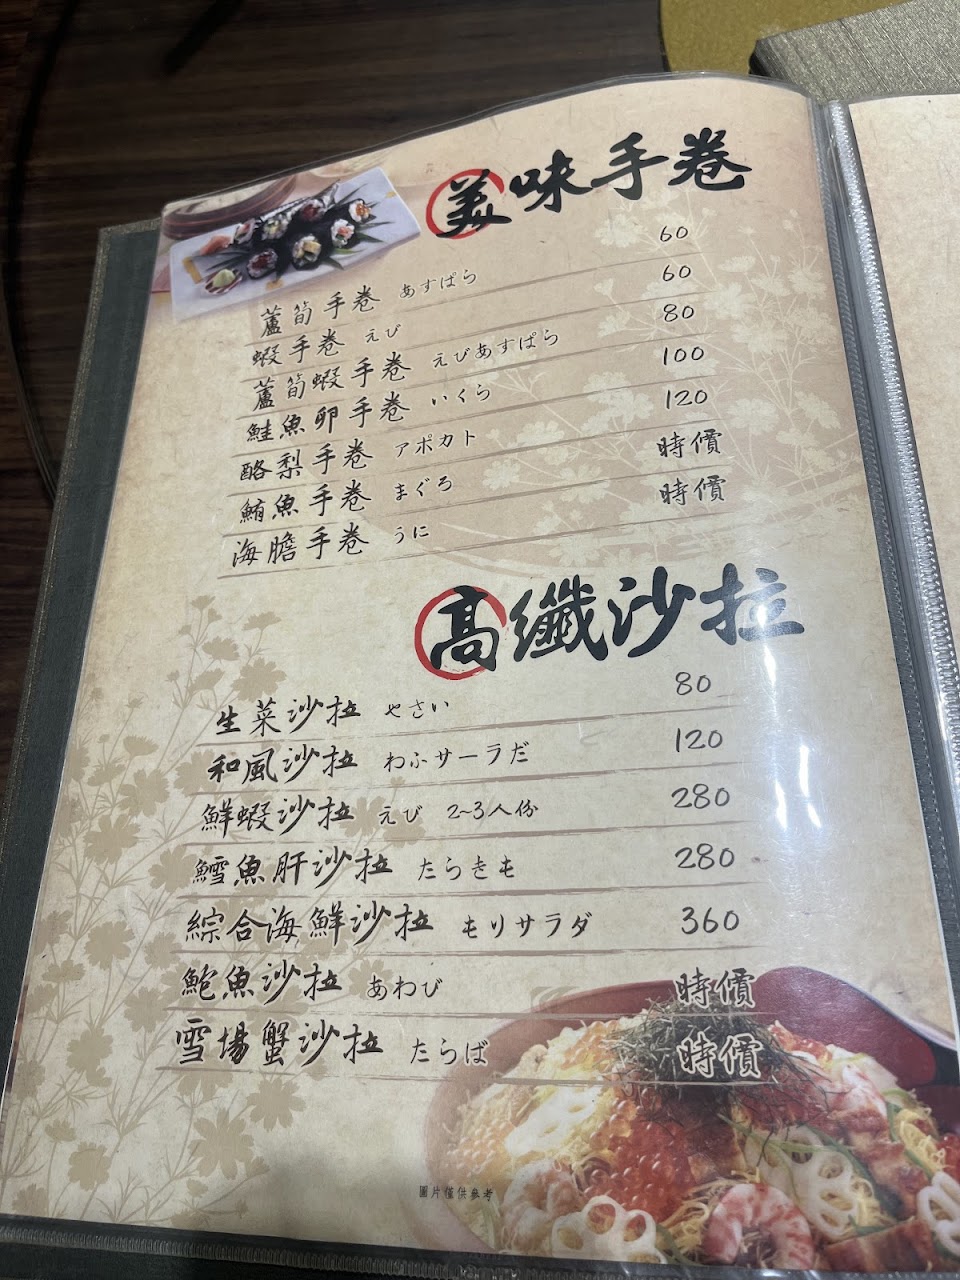 美味手卷
蘆筍手卷 あすぱら 60
蝦手卷 えび 60
蘆筍蝦手卷 えびあすぱら 80
鮭魚卵手卷 いくら 100
酪梨手卷 アポカト 120
鮪魚手卷 まぐろ 時價
海膽手卷 うに 時價
高纖沙拉
生菜沙拉 やさい 80
和風沙拉 わふサーラだ 120
鮮蝦沙拉 えび 2~3人份 280
鱈魚肝沙拉 たらきも 280
綜合海鮮沙拉 モリサラダ 360
鮑魚沙拉 あわび 時價
雪場蟹沙拉 たらば 時價
圖片僅供參考